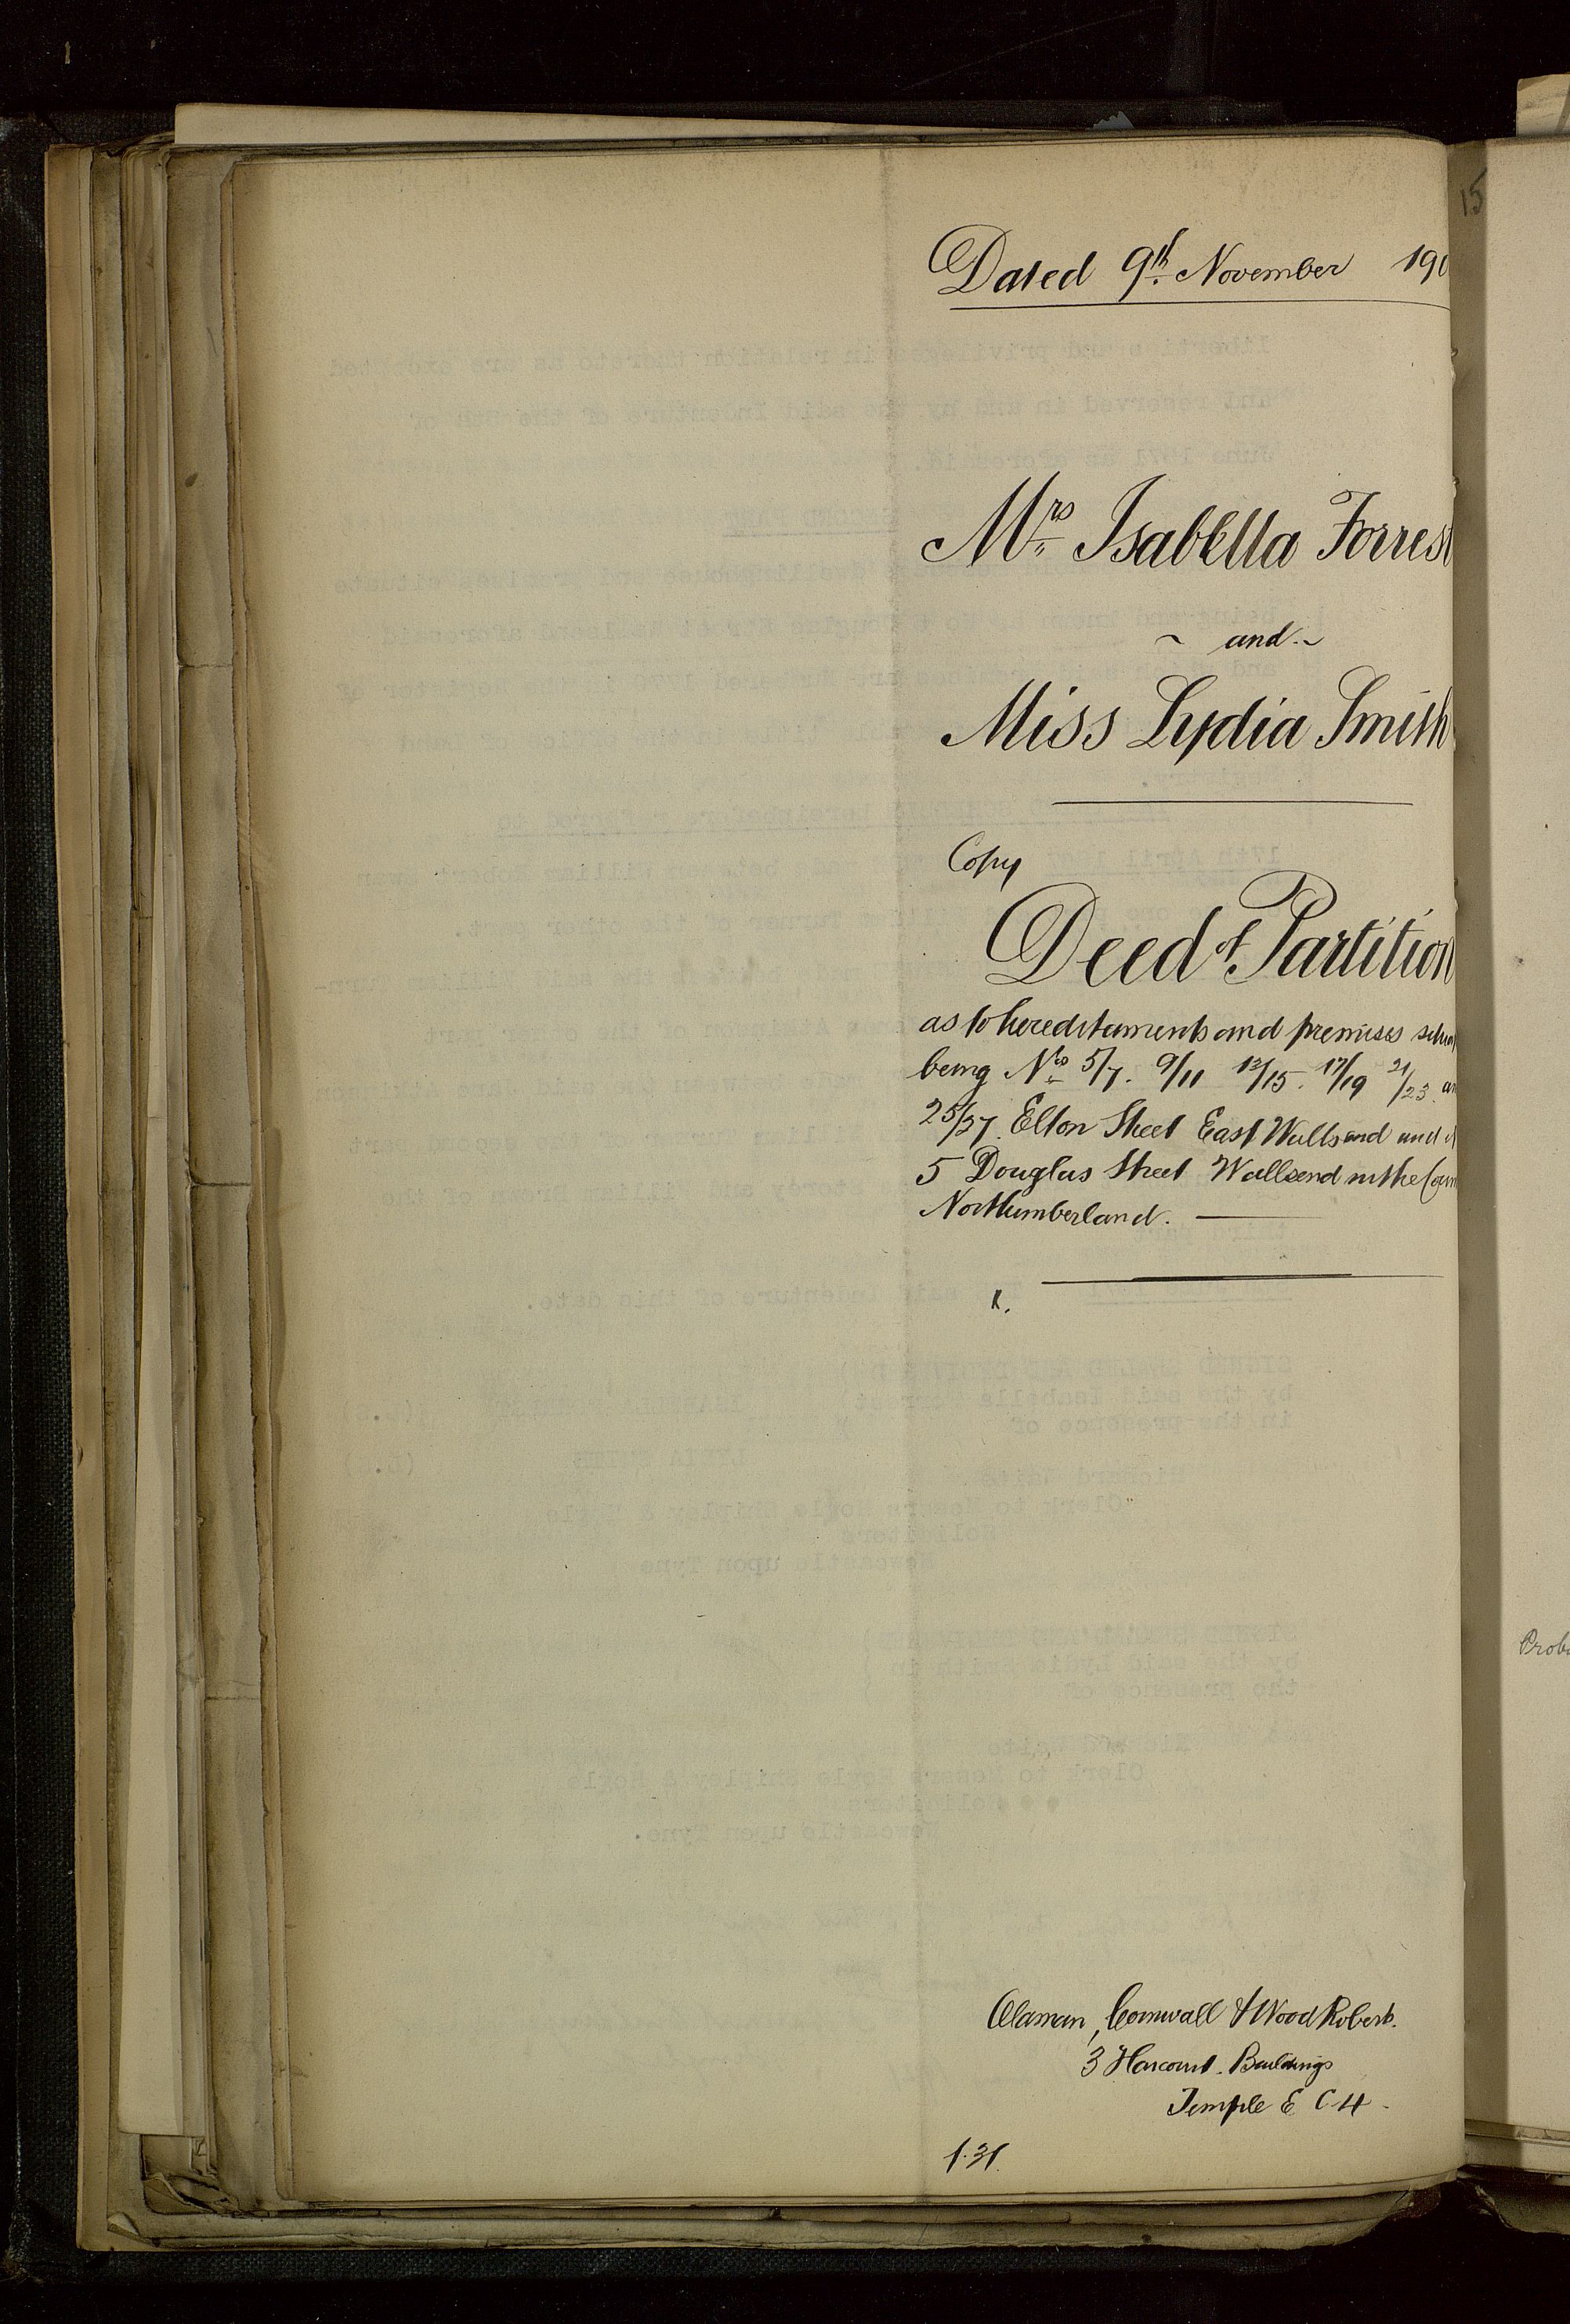 15
Dated 9th November 190
Mrs Isabella Forrest
~ and ~
Miss Lydia Smith
Copy
Deed of Partition
as to hereditaments and premises situa
being Nos 5/7. 9/11 13/15. 17/19 21/23. an
25/27. Elton Street East Wallsend and
5 Douglas Street Wallsend in the Coun
Northumberland.
K.
Cornwall & Wood Roberts.
3 Harcourt Buildings
Temple E C 4
1.31.
Proba